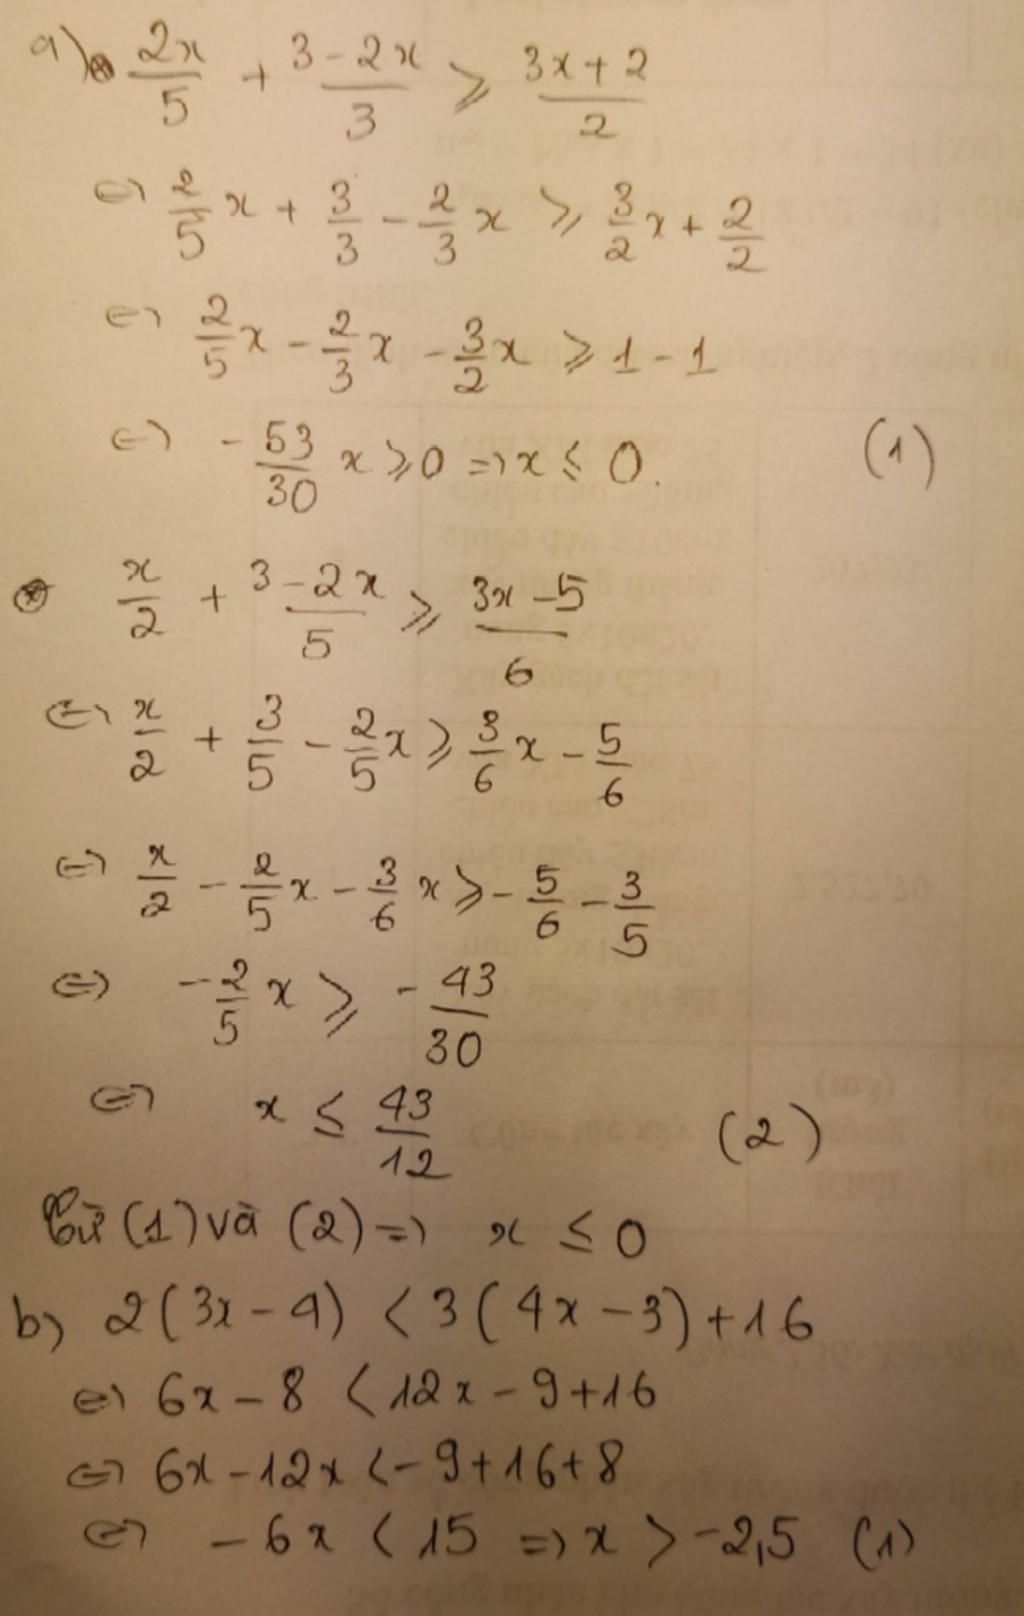 a) ⊛ 2x/5 + (3 - 2x)/3 ⩾ (3x + 2)/2
⇔ 2/5 x + 3/3 - 2/3 x ⩾ 3/2 x + 2/2
⇔ 2/5 x - 2/3 x - 3/2 x ⩾ 1 - 1
⇔ - 53/30 x ⩾ 0 ⇒ x ≤ 0. (1)
⊛ x/2 + (3 - 2x)/5 ⩾ (3x - 5)/6
⇔ x/2 + 3/5 - 2/5 x ⩾ 3/6 x - 5/6
⇔ x/2 - 2/5 x - 3/6 x ⩾ - 5/6 - 3/5
⇔ - 2/5 x ⩾ - 43/30
⇔ x ≤ 43/12 (2)
Từ (1) và (2) ⇒ x ≤ 0
b) 2(3x - 4) < 3(4x - 3) + 16
⇔ 6x - 8 < 12x - 9 + 16
⇔ 6x - 12x < - 9 + 16 + 8
⇔ - 6x < 15 ⇒ x > -2,5 (1)